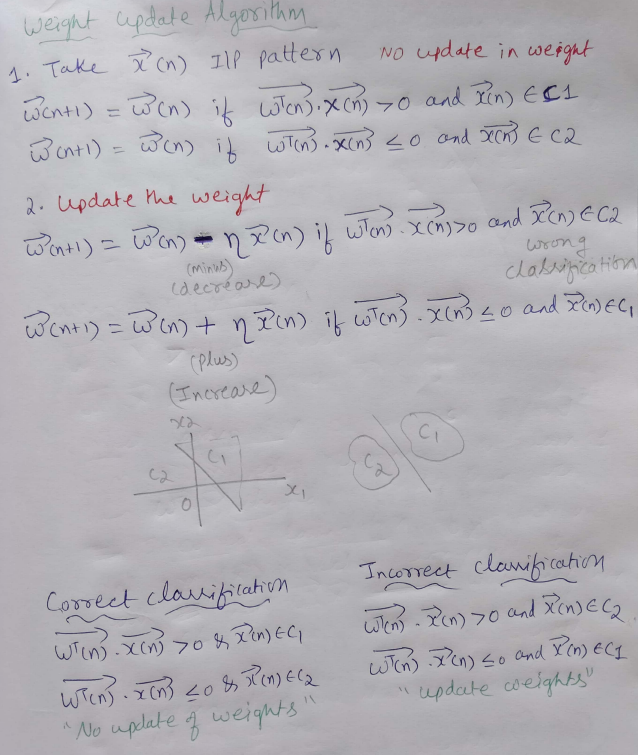 Weight Update Algorithm
1. Take x⃗(n) I/P pattern NO update in weight
w⃗(n+1) = w⃗(n) if w⃗ᵀ(n).x⃗(n) >0 and x⃗(n) ∈ C1
w⃗(n+1) = w⃗(n) if w⃗ᵀ(n).x⃗(n) ≤0 and x⃗(n) ∈ C2
2. Update the weight
w⃗(n+1) = w⃗(n) - η x⃗(n) if w⃗ᵀ(n).x⃗(n)>0 and x⃗(n) ∈ C2
(minus) wrong
(decrease) classification
w⃗(n+1) = w⃗(n) + η x⃗(n) if w⃗ᵀ(n).x⃗(n) ≤0 and x⃗(n) ∈ C₁
(plus)
(Increase)
x2
C2 C1
0 x₁
C2 C1
Correct classification
w⃗ᵀ(n).x⃗(n) >0 & x⃗(n) ∈ C₁
w⃗ᵀ(n).x⃗(n) ≤0 & x⃗(n) ∈ C₂
"No update of weights"
Incorrect classification
w⃗ᵀ(n).x⃗(n) >0 and x⃗(n) ∈ C2
w⃗ᵀ(n).x⃗(n) ≤0 and x⃗(n) ∈ C1
"update weights"